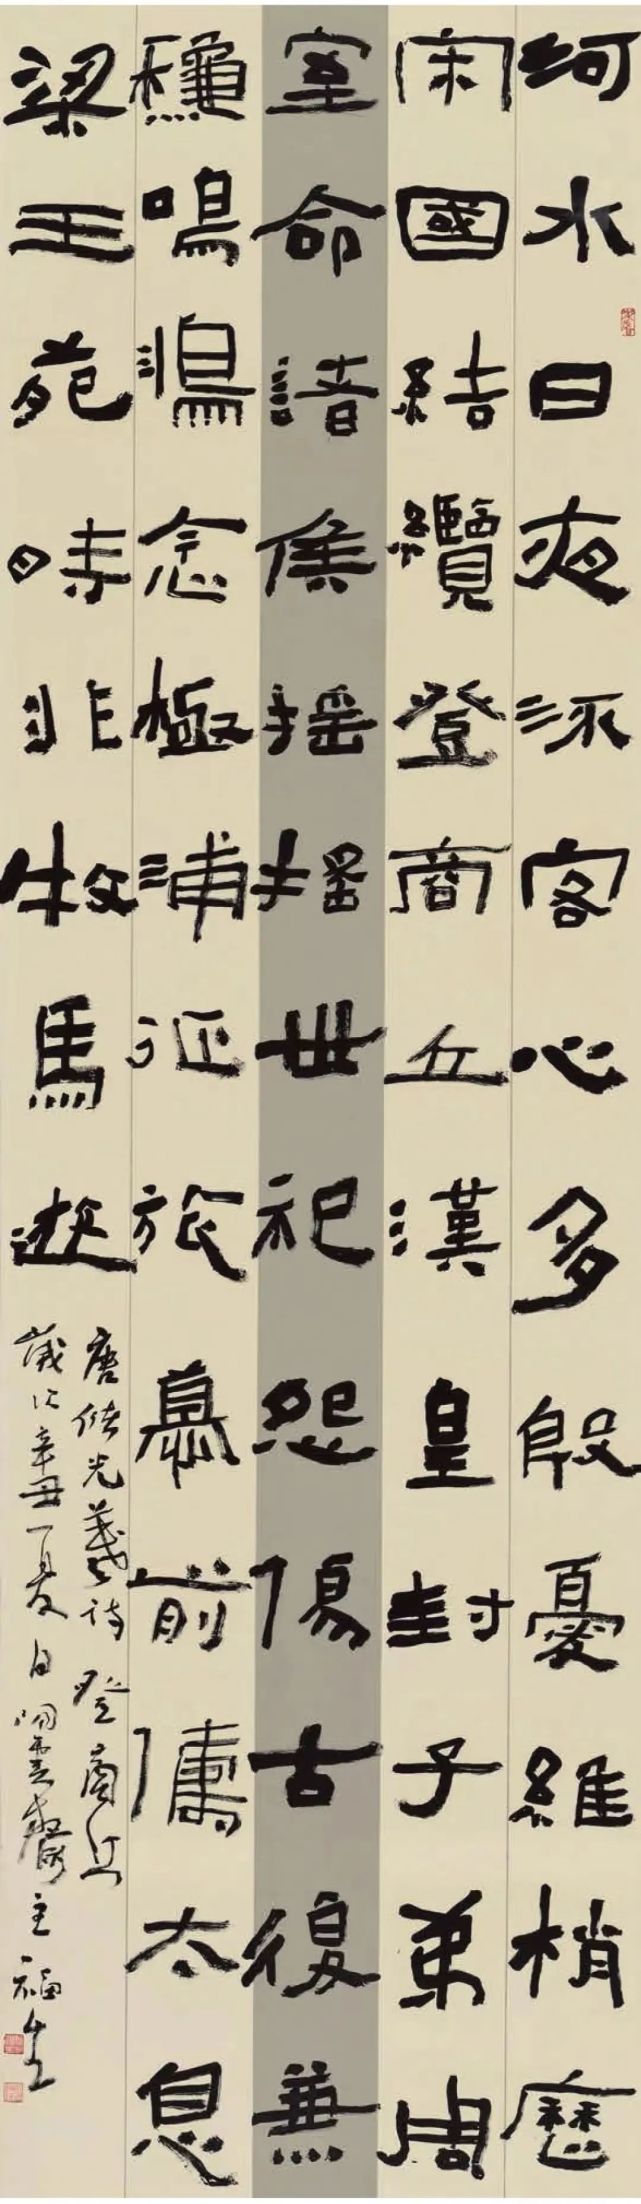 河水日夜流客心多殷憂維梢歷
宋國結纜登商丘漢皇封子弟周
室命諸侯搖搖世祀怨傷古復兼
穐鳴鴻念極浦征旅慕前儔太息
梁王苑時非牧馬遊
唐儲光羲詩登商丘
歲次辛丑夏日聞雲齋主福生